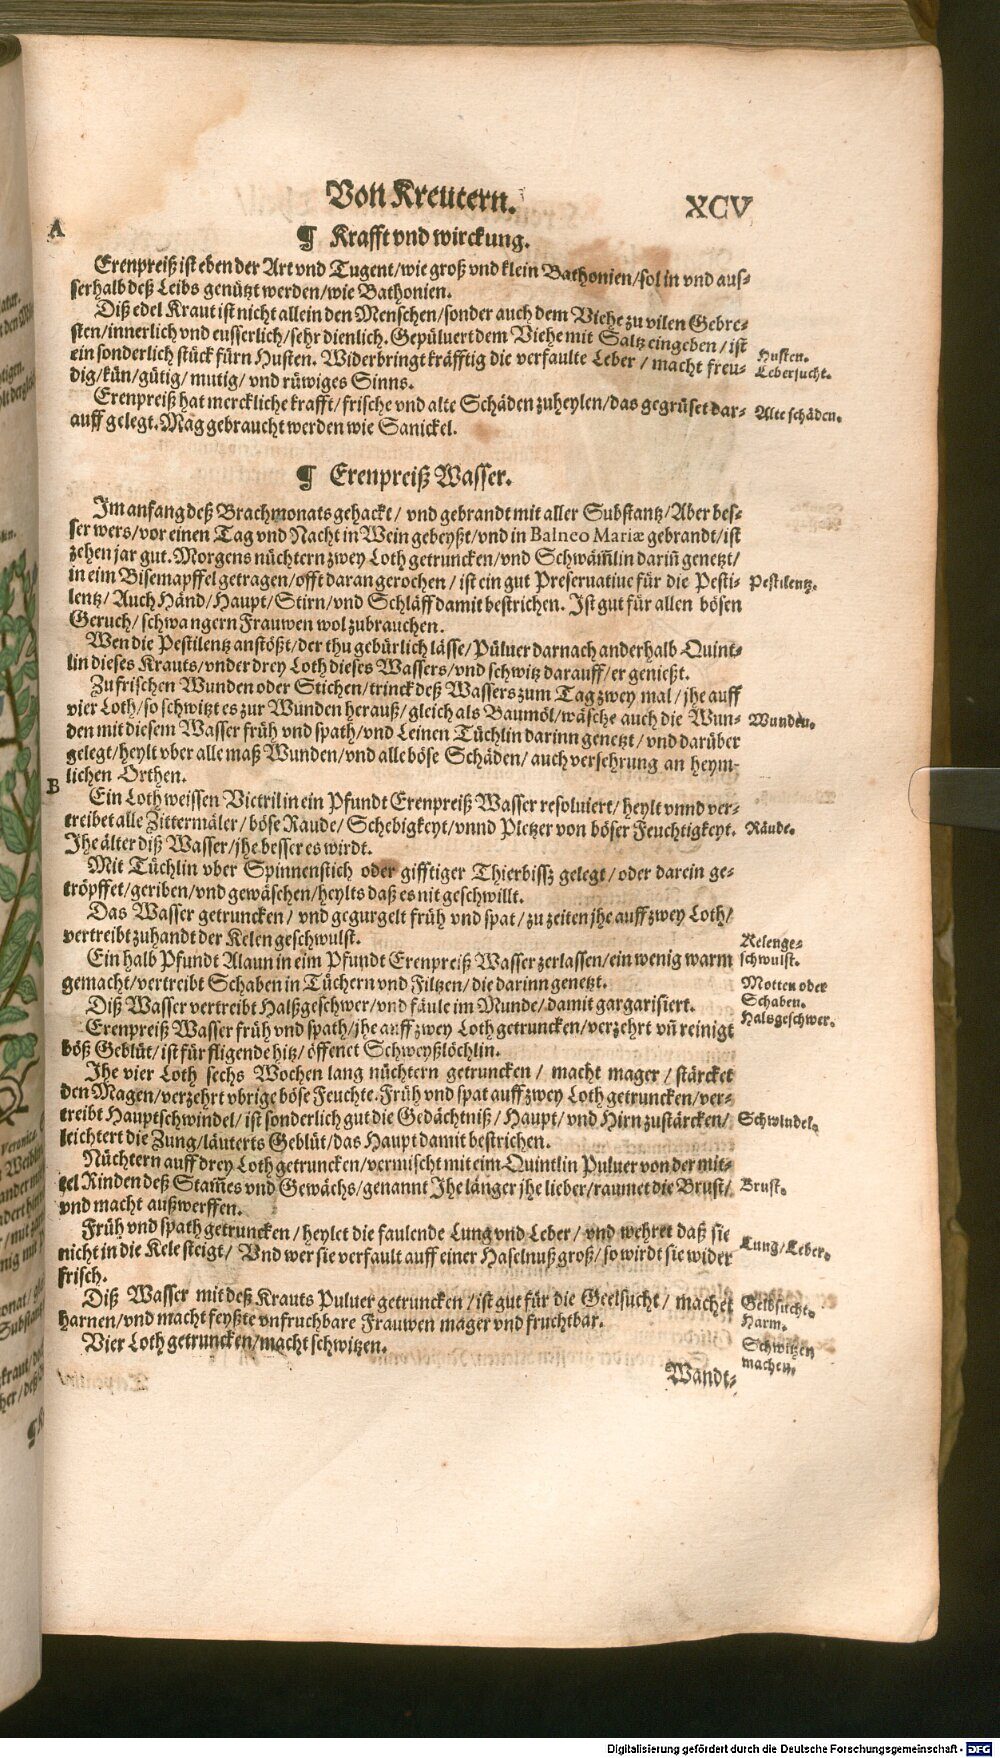 Von Kreutern. XCV
A
¶ Krafft vnd wirckung.
Erenpreiß ist eben der Art vnd Tugent/wie groß vnd klein Bathonien/sol in vnd aus-
serhalb deß Leibs genützt werden/wie Bathonien.
Diß edel Kraut ist nicht allein den Menschen/sonder auch dem Viehe zu vilen Gebre-
sten/innerlich vnd eusserlich/sehr dienlich. Gepüluert dem Viehe mit Saltz eingeben/ist
ein sonderlich stück fürn Husten. Widerbringt kräfftig die verfaulte Leber/ macht freu-
Husten.
Lebersucht.
dig/kün/gütig/ mutig/ vnd rüwiges Sinns.
Erenpreiß hat merckliche krafft/frische vnd alte Schäden zuheylen/das gegrüset dar-
Alte schäden.
auff gelegt. Mag gebraucht werden wie Sanickel.
¶ Erenpreiß Wasser.
Im anfang deß Brachmonats gehackt/ vnd gebrandt mit aller Substantz/Aber bes-
ser wers/vor einen Tag vnd Nacht in Wein gebeyßt/vnd in Balneo Mariæ gebrandt/ist
zehen jar gut. Morgens nüchtern zwey Loth getruncken/vnd Schwäm̃lin darin̄ genetzt/
in eim Bisemapffel getragen/offt daran gerochen/ ist ein gut Preseruatiue für die Pesti-
Pestilentz.
lentz/ Auch Händ/Haupt/Stirn/vnd Schläff damit bestrichen. Ist gut für allen bösen
Geruch/schwangern Frauwen wol zubrauchen.
Wen die Pestilentz anstößt/der thu gebürlich lässe/Püluer darnach anderhalb Quint-
lin dieses Krauts/vnder drey Loth dieses Wassers/vnd schwitz darauff/er genießt.
Zu frischen Wunden oder Stichen/trinck deß Wassers zum Tag zwey mal/ jhe auff
vier Loth/so schwitzt es zur Wunden herauß/gleich als Baumöl/wäsche auch die Wun-
Wunden.
den mit diesem Wasser früh vnd spath/vnd Leinen Tüchlin darinn genetzt/ vnd darüber
gelegt/heylt vber alle maß Wunden/vnd alle böse Schäden/ auch versehrung an heym-
B
lichen Orthen.
Ein Loth weissen Victril in ein Pfundt Erenpreiß Wasser resoluiert/ heylt vnnd ver-
treibet alle Zittermäler/ böse Raude/ Schebigkeyt/vnnd Pletzer von böser Feuchtigkeyt.
Räude.
Jhe älter diß Wasser/jhe besser es wirdt.
Mit Tüchlin vber Spinnenstich oder gifftiger Thierbissz gelegt/ oder darein ge-
tröpffet/geriben/vnd gewäschen/heylts daß es nit geschwillt.
Das Wasser getruncken/ vnd gegurgelt früh vnd spat/ zu zeiten jhe auff zwey Loth/
vertreibt zuhandt der Kelen geschwulst.
Kelenge-
schwulst.
Ein halb Pfundt Alaun in eim Pfundt Erenpreiß Wasser zerlassen/ein wenig warm
gemacht/vertreibt Schaben in Tüchern vnd Filtzen/die darinn genetzt.
Motten oder
Schaben.
Diß Wasser vertreibt Halßgeschwer/vnd fäule im Munde/damit gargarisiert.
Halsgeschwer.
Erenpreiß Wasser früh vnd spath/jhe auff zwey Loth getruncken/verzehrt vn̄ reinigt
böß Geblüt/ist für fligende hitz/öffenet Schweyßlöchlin.
Jhe vier Loth sechs Wochen lang nüchtern getruncken/ macht mager/ stärcket
den Magen/verzehrt vbrige böse Feuchte. Früh vnd spat auff zwey Loth getruncken/ver-
treibt Hauptschwindel/ist sonderlich gut die Gedächtniß/Haupt/vnd Hirn zustärcken/
Schwindel.
leichtert die Zung/läuterts Geblüt/das Haupt damit bestrichen.
Nüchtern auff drey Loth getruncken/vermischt mit eim Quintlin Puluer von der mit-
tel Rinden deß Stam̄es vnd Gewächs/genannt Jhe länger jhe lieber/raumet die Brust/
Brust.
vnd macht außwerffen.
Früh vnd spath getruncken/ heylet die faulende Lung vnd Leber/ vnd wehret daß sie
nicht in die Kele steigt/ Vnd wer sie verfault auff einer Haselnuß groß/so wirdt sie wider
Lung/Leber.
frisch.
Diß Wasser mit deß Krauts Puluer getruncken/ist gut für die Geelsucht/ machet
Gelbsucht.
harnen/vnd macht feyßte vnfruchbare Frauwen mager vnd fruchtbar.
Harm.
Vier Loth getruncken/macht schwitzen.
Schwitzen
machen.
Wandt-
Digitalisierung gefördert durch die Deutsche Forschungsgemeinschaft - DFG